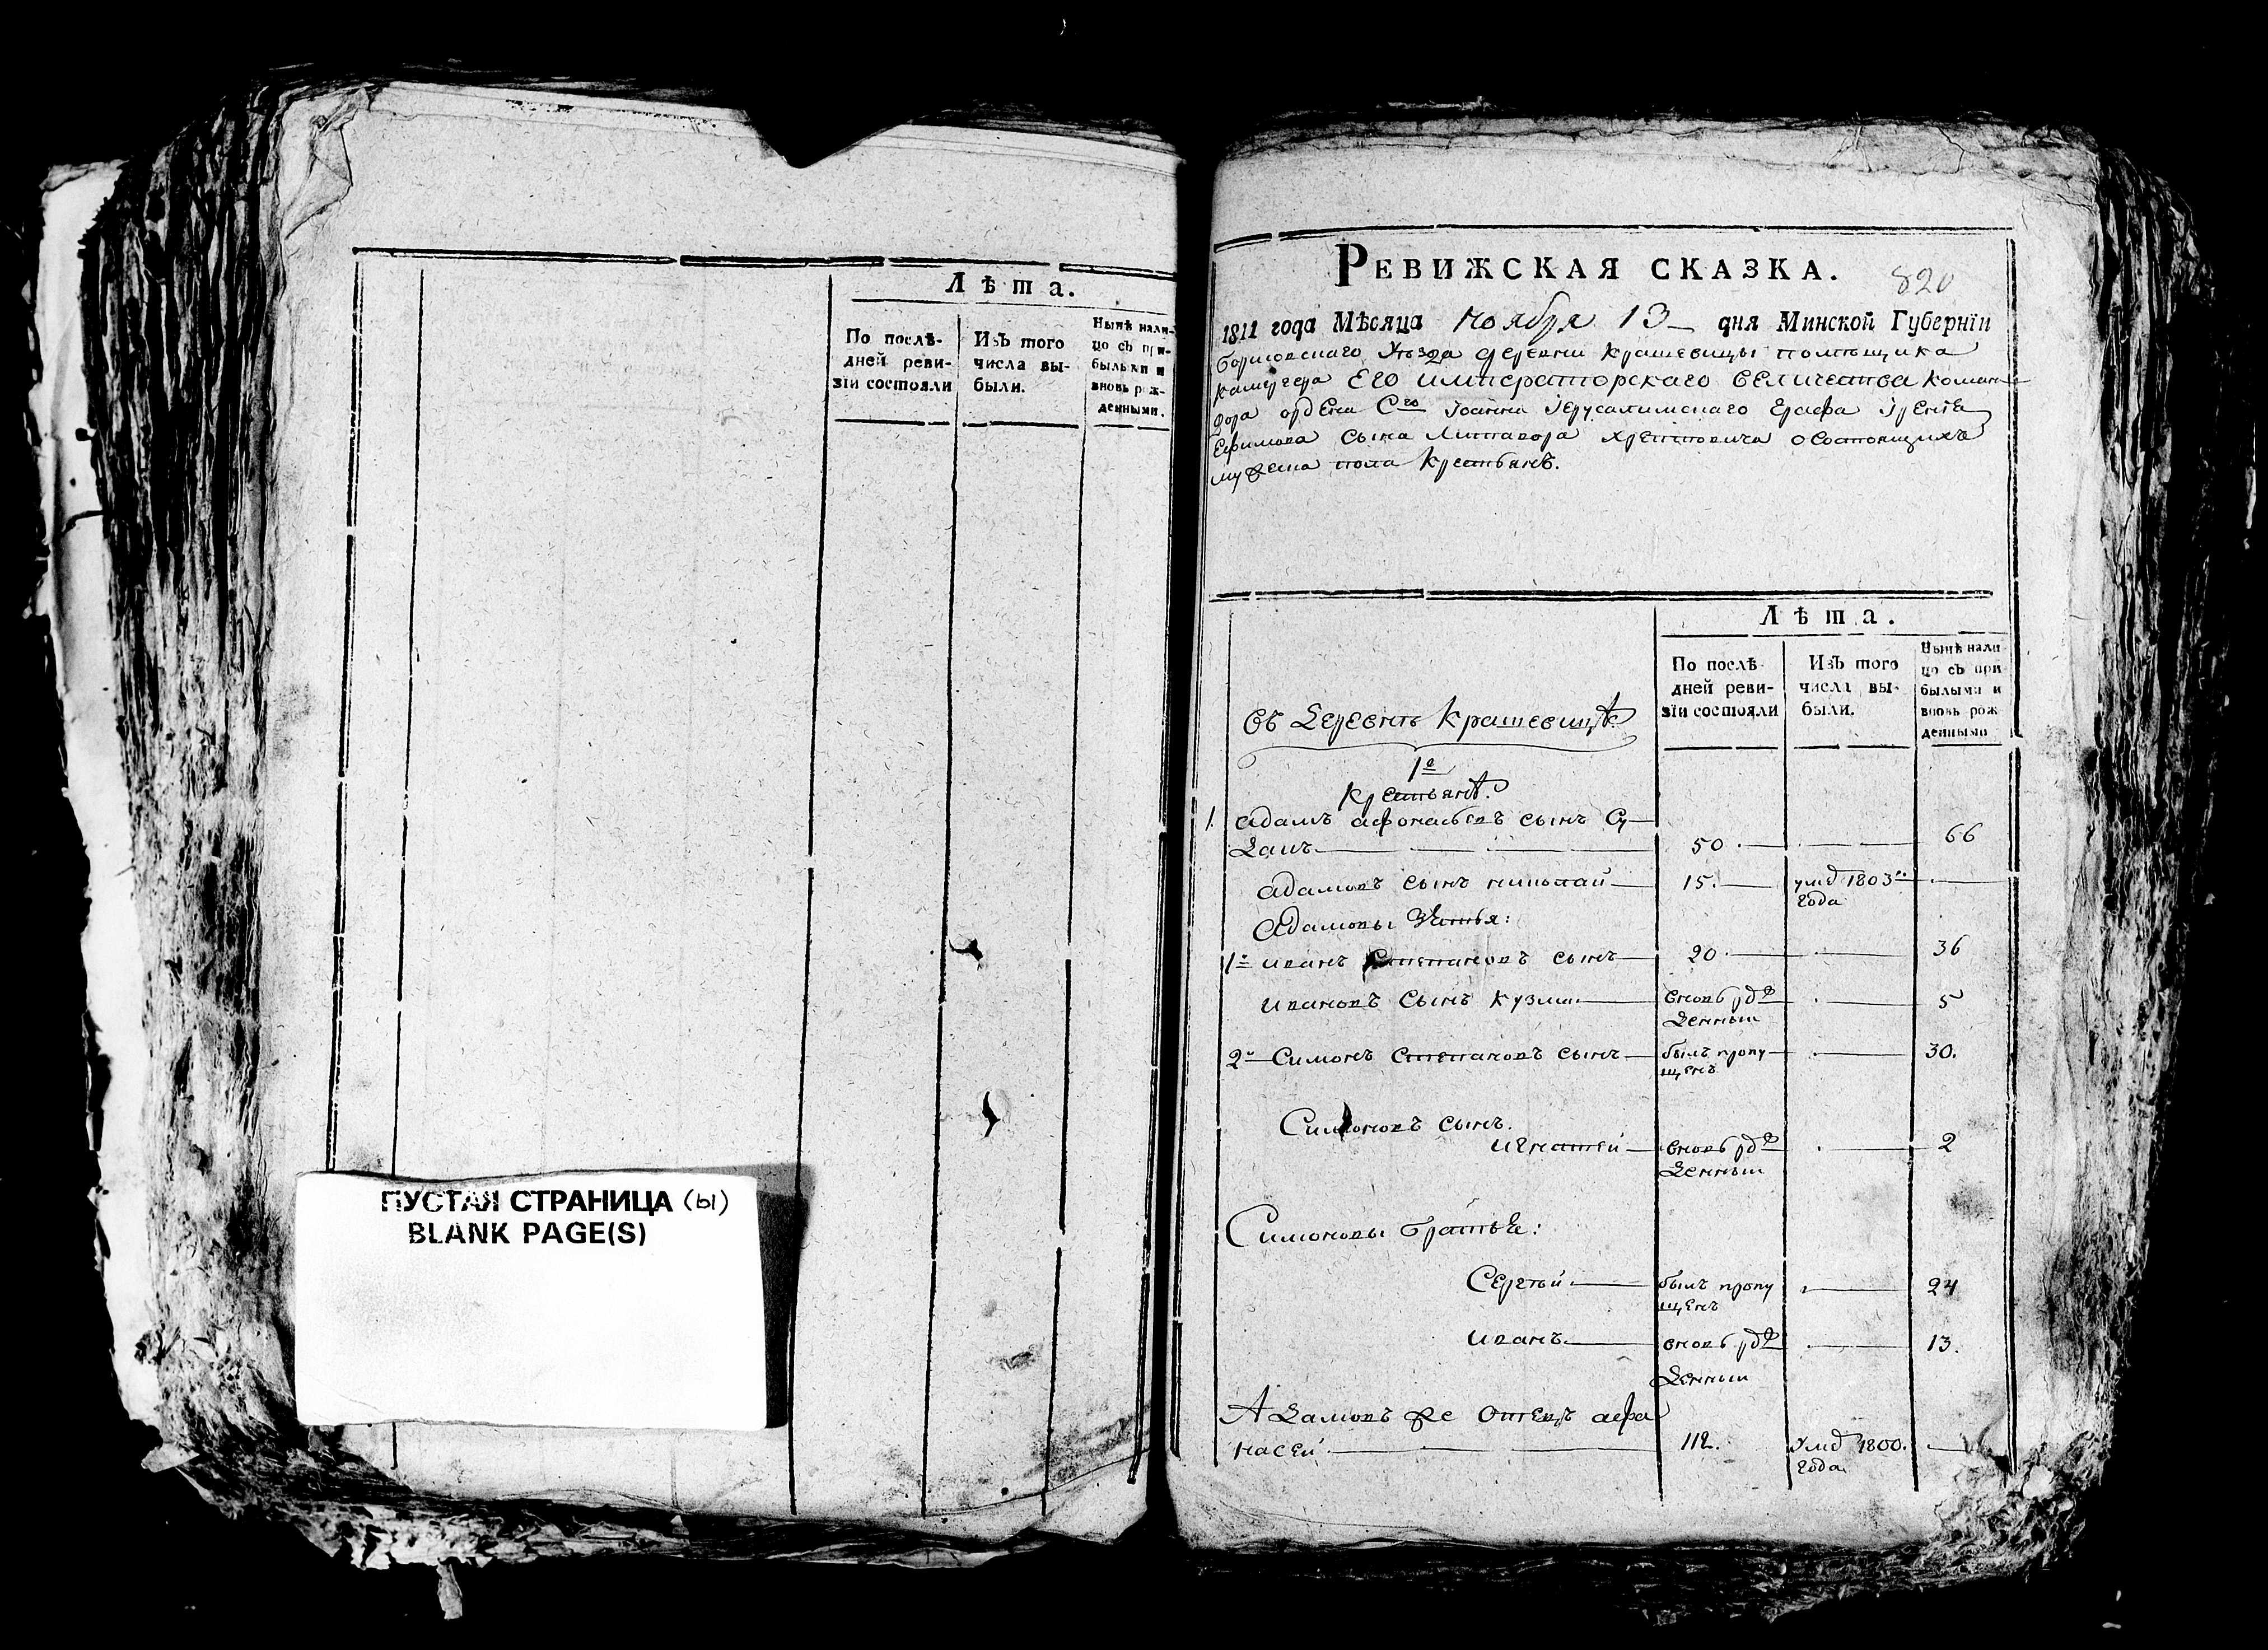 Лѣта.
По послѣ-
дней реви-
зіи состояли
Изъ того
числа вы-
были.
Нынѣ нали-
цо съ при-
былыми и
вновь рож-
денными.
ПУСТАЯ СТРАНИЦА (ы)
BLANK PAGE(S)
РЕВИЖСКАЯ СКАЗКА.
820
1811 года Мѣсяца ноября 13 дня Минской Губерніи
борисовскаго уѣзда деревни крашевицы помѣщика
камергера Его императорскаго величества коман-
дора ордена Сго Іоанна Іерусалимскаго графа
Ефимова сына Литавора хрептовича о состоящихъ
мужеска пола крестьянъ.
Лѣта.
По послѣ-
дней реви-
зіи состояли
Изъ того
числа вы-
были.
Нынѣ нали-
цо съ при
былыми и
вновь рож
денными
въ деревнѣ крашевицѣ
1е
крестьянѣ.
1. адамъ афонасьевъ сынъ
50 66
адамовъ сынъ николай 15. умд 1803го
года
Адамовы зятья:
1е иванъ степановъ сынъ 20 36
ивановъ сынъ кузма вновь
денный 5
2е Симонъ степановъ сынъ былъ пропу
щенъ 30.
Симоновъ сынъ.
игнатей вновь
денный 2
Симоновы братья:
Сергѣй былъ пропу
щенъ 24
иванъ вновь
денный 13.
Адамовъ же отецъ афа
насей 112. умд 1800.
года